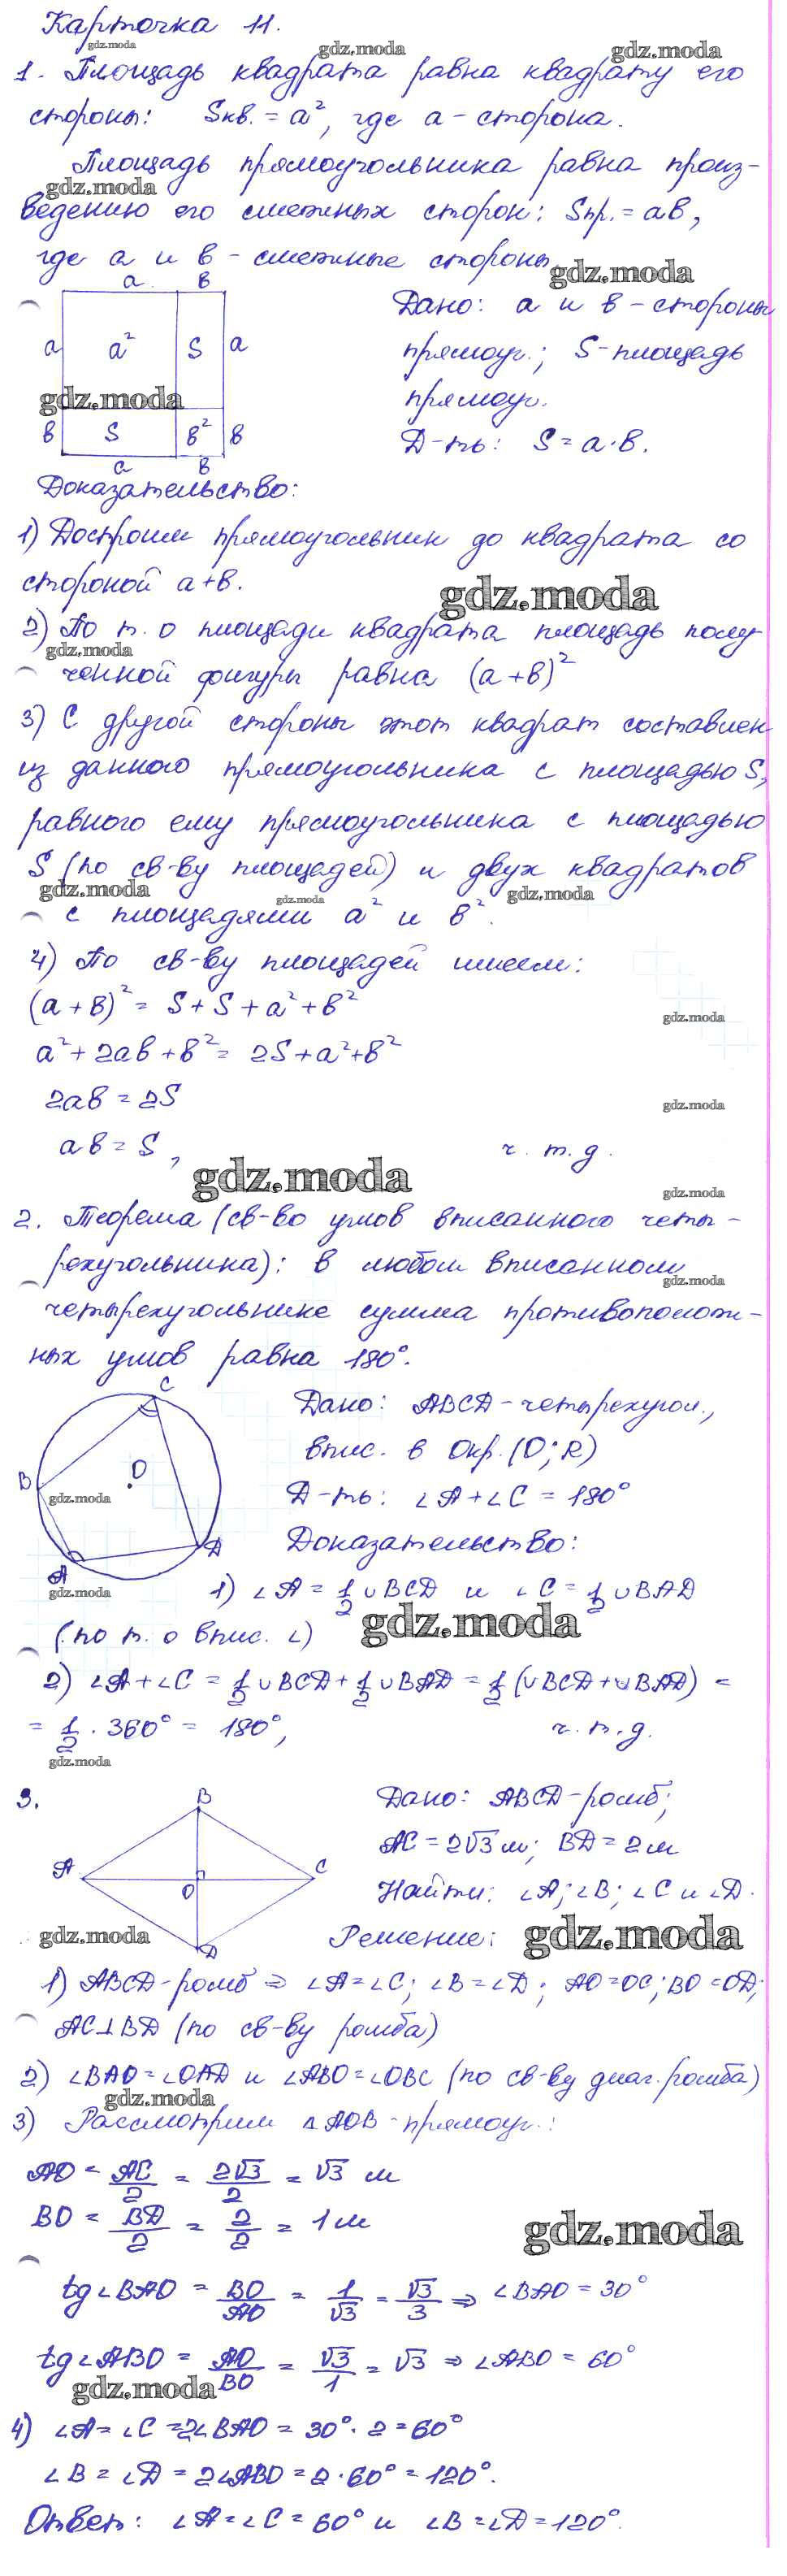 Карточка 11.
gdz.moda
gdz.moda
gdz.moda
1. Площадь квадрата равна квадрату его
стороны: Sкв. = a², где a - сторона.
Площадь прямоугольника равна произ-
gdz.moda
ведению его смежных сторон: Sпр. = ab,
где a и b - смежные стороны.
gdz.moda
a b
Дано: a и b - стороны
a a² S a
прямоуг.; S - площадь
gdz.moda
прямоуг.
b S b² b
Д-ть: S = a·b.
a b
Доказательство:
1) Достроим прямоугольник до квадрата со
стороной a+b.
gdz.moda
2) По т. о площади квадрата площадь полу-
gdz.moda
ченной фигуры равна (a+b)²
3) С другой стороны этот квадрат составлен
из данного прямоугольника с площадью S,
равного ему прямоугольника с площадью
S (по св-ву площадей) и двух квадратов
gdz.moda
gdz.moda
gdz.moda
с площадями a² и b².
4) По св-ву площадей имеем:
(a+b)² = S+S+a²+b²
gdz.moda
a²+2ab+b² = 2S+a²+b²
2ab = 2S
gdz.moda
ab = S, ч.т.д.
gdz.moda
gdz.moda
2. Теорема (св-во углов вписанного четы-
рехугольника): в любом вписанном
gdz.moda
четырехугольнике сумма противополож-
ных углов равна 180°.
C
Дано: ABCD - четырехугол.,
впис. в Окр.(O;R)
B O
gdz.moda
Д-ть: ∠A+∠C = 180°
D
Доказательство:
A
gdz.moda
1) ∠A = 1/2 ∪BCD и ∠C = 1/2 ∪BAD
gdz.moda
(по т. о впис. ∠)
2) ∠A+∠C = 1/2 ∪BCD + 1/2 ∪BAD = 1/2 (∪BCD+∪BAD) =
= 1/2 · 360° = 180°, ч.т.д.
gdz.moda
3.
B
Дано: ABCD - ромб;
AC = 2√3 м; BD = 2 м
A O C
Найти: ∠A; ∠B; ∠C и ∠D.
gdz.moda
D
Решение:
gdz.moda
1) ABCD - ромб ⇒ ∠A=∠C; ∠B=∠D; AO=OC; BO=OD;
AC⊥BD (по св-ву ромба)
2) ∠BAO=∠OAD и ∠ABO=∠OBC (по св-ву диаг. ромба)
gdz.moda
3) Рассмотрим △AOB - прямоуг.:
AO = AC/2 = 2√3/2 = √3 м
BO = BD/2 = 2/2 = 1 м
gdz.moda
tg∠BAO = BO/AO = 1/√3 = √3/3 ⇒ ∠BAO = 30°
tg∠ABO = AO/BO = √3/1 = √3 ⇒ ∠ABO = 60°
gdz.moda
4) ∠A = ∠C = 2∠BAO = 30°·2 = 60°
∠B = ∠D = 2∠ABO = 2·60° = 120°.
Ответ: ∠A = ∠C = 60° и ∠B = ∠D = 120°.